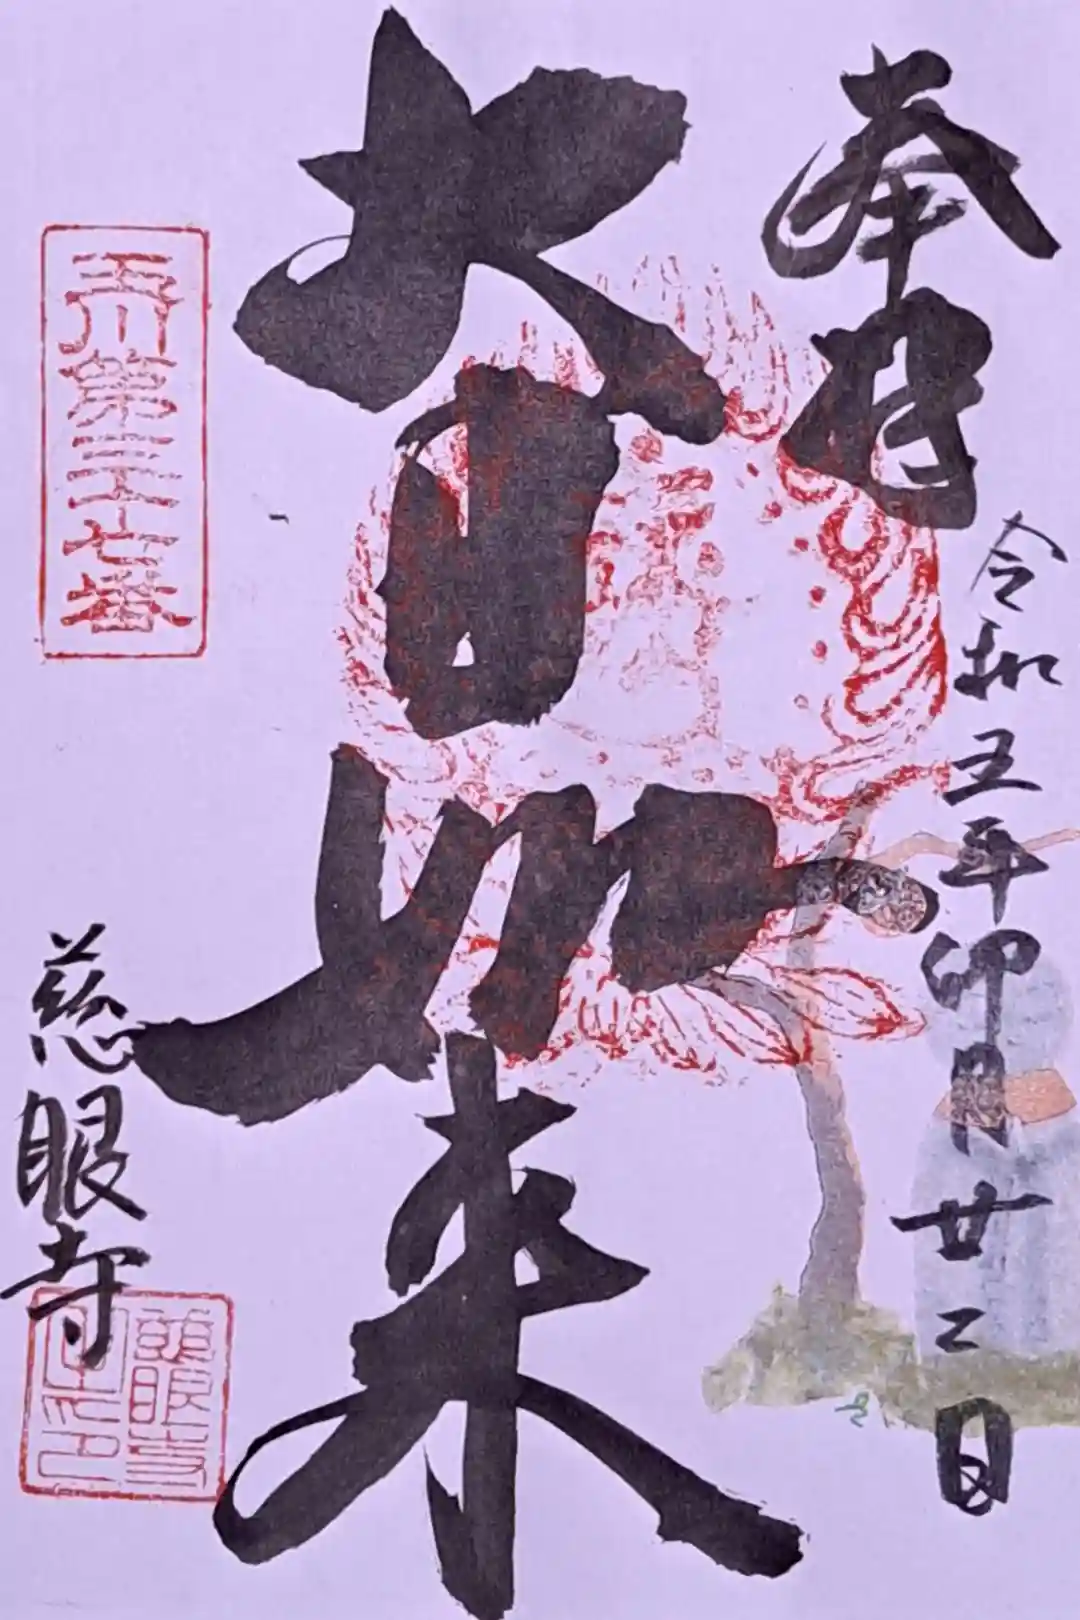 奉拝
令和五年卯月廿二日
大日如来
玉川第三十七番
慈眼寺
慈眼寺